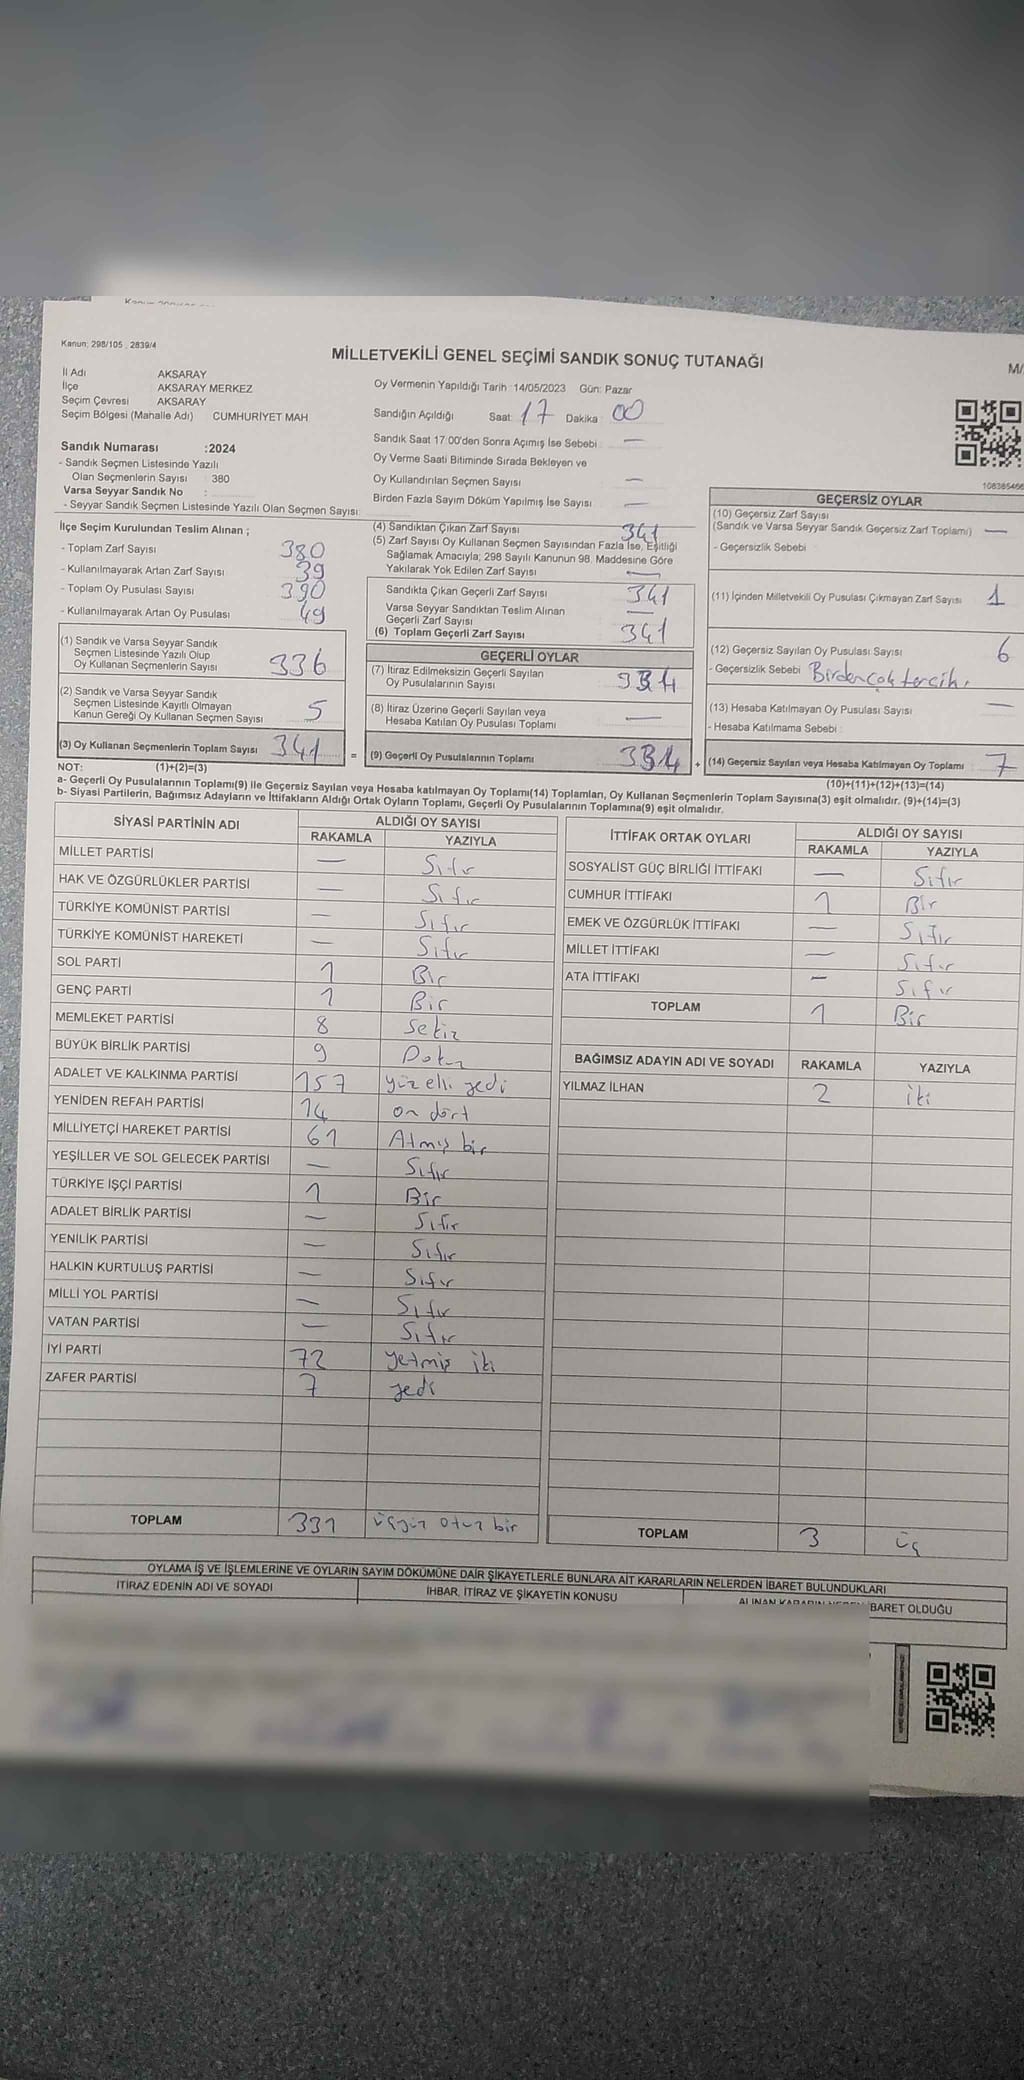 Kanun; 298/105 , 2839/4
MİLLETVEKİLİ GENEL SEÇİMİ SANDIK SONUÇ TUTANAĞI
M/
İl Adı AKSARAY
İlçe AKSARAY MERKEZ
Seçim Çevresi AKSARAY
Seçim Bölgesi (Mahalle Adı) CUMHURİYET MAH
Oy Vermenin Yapıldığı Tarih : 14/05/2023 Gün: Pazar
Sandığın Açıldığı Saat: 17 Dakika : 00
Sandık Saat 17:00'den Sonra Açımış İse Sebebi : —
Oy Verme Saati Bitiminde Sırada Bekleyen ve
Oy Kullandırılan Seçmen Sayısı —
Birden Fazla Sayım Döküm Yapılmış İse Sayısı : —
Sandık Numarası :2024
- Sandık Seçmen Listesinde Yazılı
Olan Seçmenlerin Sayısı : 380
Varsa Seyyar Sandık No :
- Seyyar Sandık Seçmen Listesinde Yazılı Olan Seçmen Sayısı:
İlçe Seçim Kurulundan Teslim Alınan ;
- Toplam Zarf Sayısı 380
- Kullanılmayarak Artan Zarf Sayısı 39
- Toplam Oy Pusulası Sayısı 390
- Kullanılmayarak Artan Oy Pusulası 49
(1) Sandık ve Varsa Seyyar Sandık
Seçmen Listesinde Yazılı Olup
Oy Kullanan Seçmenlerin Sayısı 336
(2) Sandık ve Varsa Seyyar Sandık
Seçmen Listesinde Kayıtlı Olmayan
Kanun Gereği Oy Kullanan Seçmen Sayısı 5
(3) Oy Kullanan Seçmenlerin Toplam Sayısı 341 =
(4) Sandıktan Çıkan Zarf Sayısı 341
(5) Zarf Sayısı Oy Kullanan Seçmen Sayısından Fazla İse, Eşitliği
Sağlamak Amacıyla; 298 Sayılı Kanunun 98. Maddesine Göre
Yakılarak Yok Edilen Zarf Sayısı —
Sandıkta Çıkan Geçerli Zarf Sayısı 341
Varsa Seyyar Sandıktan Teslim Alınan
Geçerli Zarf Sayısı —
(6) Toplam Geçerli Zarf Sayısı 341
GEÇERLİ OYLAR
(7) İtiraz Edilmeksizin Geçerli Sayılan
Oy Pusulalarının Sayısı 334
(8) İtiraz Üzerine Geçerli Sayılan veya
Hesaba Katılan Oy Pusulası Toplamı —
(9) Geçerli Oy Pusulalarının Toplamı 334 +
108385466
GEÇERSİZ OYLAR
(10) Geçersiz Zarf Sayısı
(Sandık ve Varsa Seyyar Sandık Geçersiz Zarf Toplamı) —
- Geçersizlik Sebebi :
(11) İçinden Milletvekili Oy Pusulası Çıkmayan Zarf Sayısı 1
(12) Geçersiz Sayılan Oy Pusulası Sayısı 6
- Geçersizlik Sebebi : Birden çok tercih.
(13) Hesaba Katılmayan Oy Pusulası Sayısı —
- Hesaba Katılmama Sebebi :
(14) Geçersiz Sayılan veya Hesaba Katılmayan Oy Toplamı 7
NOT: (1)+(2)=(3) (10)+(11)+(12)+(13)=(14)
a- Geçerli Oy Pusulalarının Toplamı(9) ile Geçersiz Sayılan veya Hesaba katılmayan Oy Toplamı(14) Toplamları, Oy Kullanan Seçmenlerin Toplam Sayısına(3) eşit olmalıdır. (9)+(14)=(3)
b- Siyasi Partilerin, Bağımsız Adayların ve İttifakların Aldığı Ortak Oyların Toplamı, Geçerli Oy Pusulalarının Toplamına(9) eşit olmalıdır.
SİYASİ PARTİNİN ADI ALDIĞI OY SAYISI
RAKAMLA YAZIYLA
MİLLET PARTİSİ — Sıfır
HAK VE ÖZGÜRLÜKLER PARTİSİ — Sıfır
TÜRKİYE KOMÜNİST PARTİSİ — Sıfır
TÜRKİYE KOMÜNİST HAREKETİ — Sıfır
SOL PARTİ 1 Bir
GENÇ PARTİ 1 Bir
MEMLEKET PARTİSİ 8 Sekiz
BÜYÜK BİRLİK PARTİSİ 9 Dokuz
ADALET VE KALKINMA PARTİSİ 157 yüz elli yedi
YENİDEN REFAH PARTİSİ 14 on dört
MİLLİYETÇİ HAREKET PARTİSİ 61 Atmış bir
YEŞİLLER VE SOL GELECEK PARTİSİ — Sıfır
TÜRKİYE İŞÇİ PARTİSİ 1 Bir
ADALET BİRLİK PARTİSİ — Sıfır
YENİLİK PARTİSİ — Sıfır
HALKIN KURTULUŞ PARTİSİ — Sıfır
MİLLİ YOL PARTİSİ — Sıfır
VATAN PARTİSİ — Sıfır
İYİ PARTİ 72 yetmiş iki
ZAFER PARTİSİ 7 yedi
TOPLAM 331 üçyüz otuz bir
İTTİFAK ORTAK OYLARI ALDIĞI OY SAYISI
RAKAMLA YAZIYLA
SOSYALİST GÜÇ BİRLİĞİ İTTİFAKI — Sıfır
CUMHUR İTTİFAKI 1 Bir
EMEK VE ÖZGÜRLÜK İTTİFAKI — Sıfır
MİLLET İTTİFAKI — Sıfır
ATA İTTİFAKI — Sıfır
TOPLAM 1 Bir
BAĞIMSIZ ADAYIN ADI VE SOYADI RAKAMLA YAZIYLA
YILMAZ İLHAN 2 iki
TOPLAM 3 üç
OYLAMA İŞ VE İŞLEMLERİNE VE OYLARIN SAYIM DÖKÜMÜNE DAİR ŞİKAYETLERLE BUNLARA AİT KARARLARIN NELERDEN İBARET BULUNDUKLARI
İTİRAZ EDENİN ADI VE SOYADI İHBAR, İTİRAZ VE ŞİKAYETİN KONUSU ALINAN KARARIN NEDEN İBARET OLDUĞU